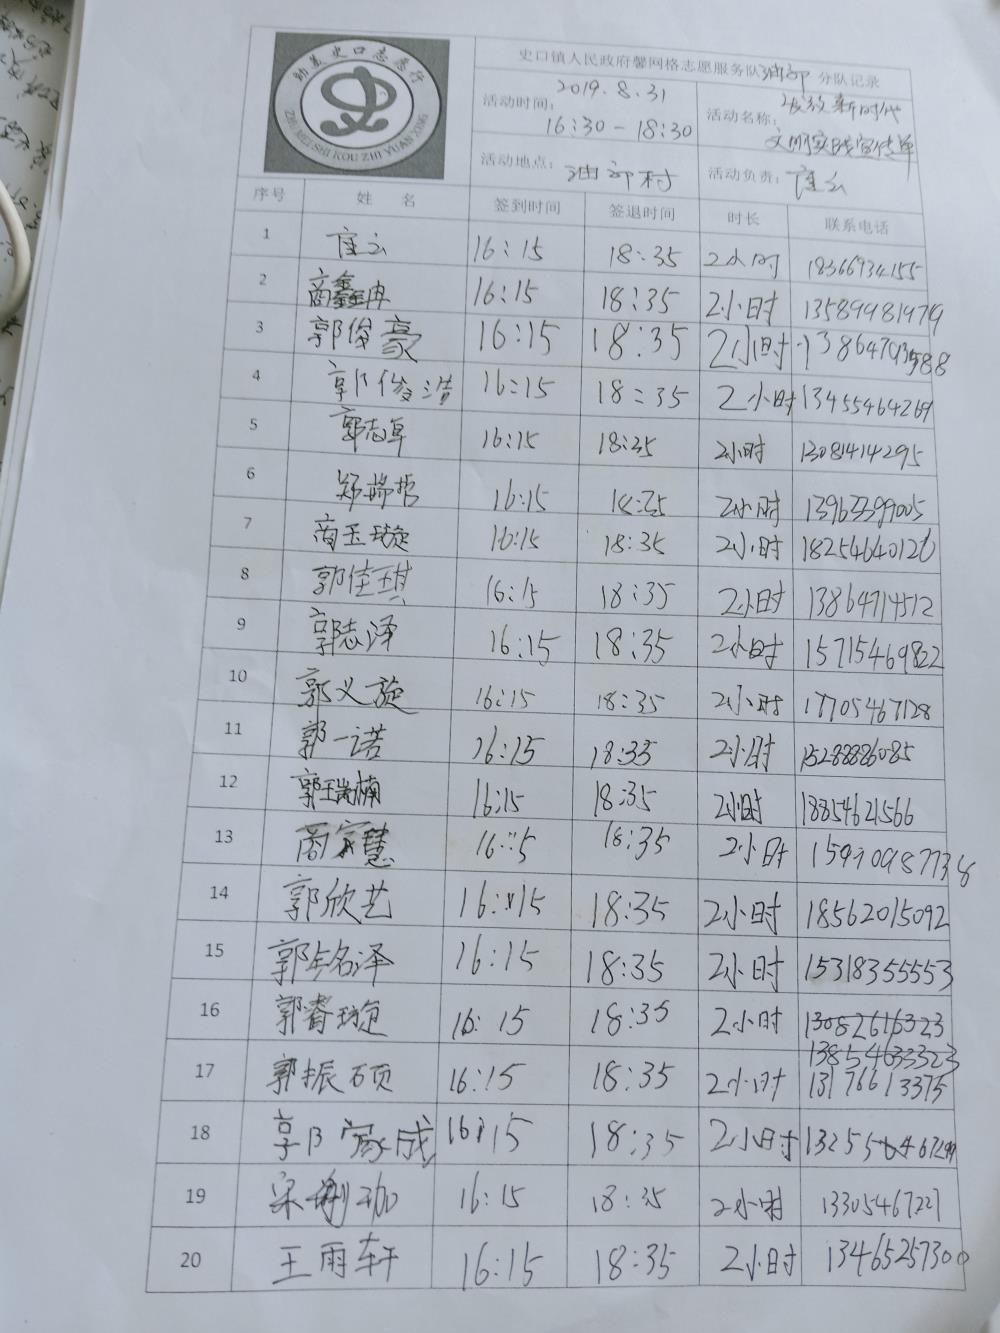 助美史口志愿行
ZHU MEI SHI KOU ZHI YUAN XING
史口镇人民政府馨网格志愿服务队油郭分队记录
活动时间: 2019.8.31 16:30-18:30
活动名称: 发放新时代文明实践宣传单
活动地点: 油郭村 活动负责: 崔云
序号 姓 名 签到时间 签退时间 时长 联系电话
1 崔云 16:15 18:35 2小时 18366934155
2 商鑫冉 16:15 18:35 2小时 13589981979
3 郭俊豪 16:15 18:35 2小时
4 郭俊浩 16:15 18:35 2小时 13455464269
5 郭志卓 16:15 18:35 2小时 13081414295
6 郑瑞哲 16:15 2小时 13963399005
7 商玉璇 16:15 18:35 2小时 18254640126
8 郭佳琪 16:15 18:35 2小时 13864714512
9 郭志泽 16:15 18:35 2小时 15715469822
10 郭义旋 16:15 18:35 2小时 17705467128
11 郭一诺 16:15 18:35 2小时 15288886085
12 郭瑞楠 16:15 18:35 2小时 18854621566
13 商家慧 16:15 18:35 2小时
14 郭欣艺 16:15 18:35 2小时 18562015092
15 郭铭泽 16:15 18:35 2小时 15318355553
16 郭睿璇 16:15 18:35 2小时
13854633323
17 郭振硕 16:15 18:35 2小时 13176613375
18 郭家成 16:15 18:35 2小时
19 16:15 18:35 2小时 13305467227
20 王雨轩 16:15 18:35 2小时 13465257300